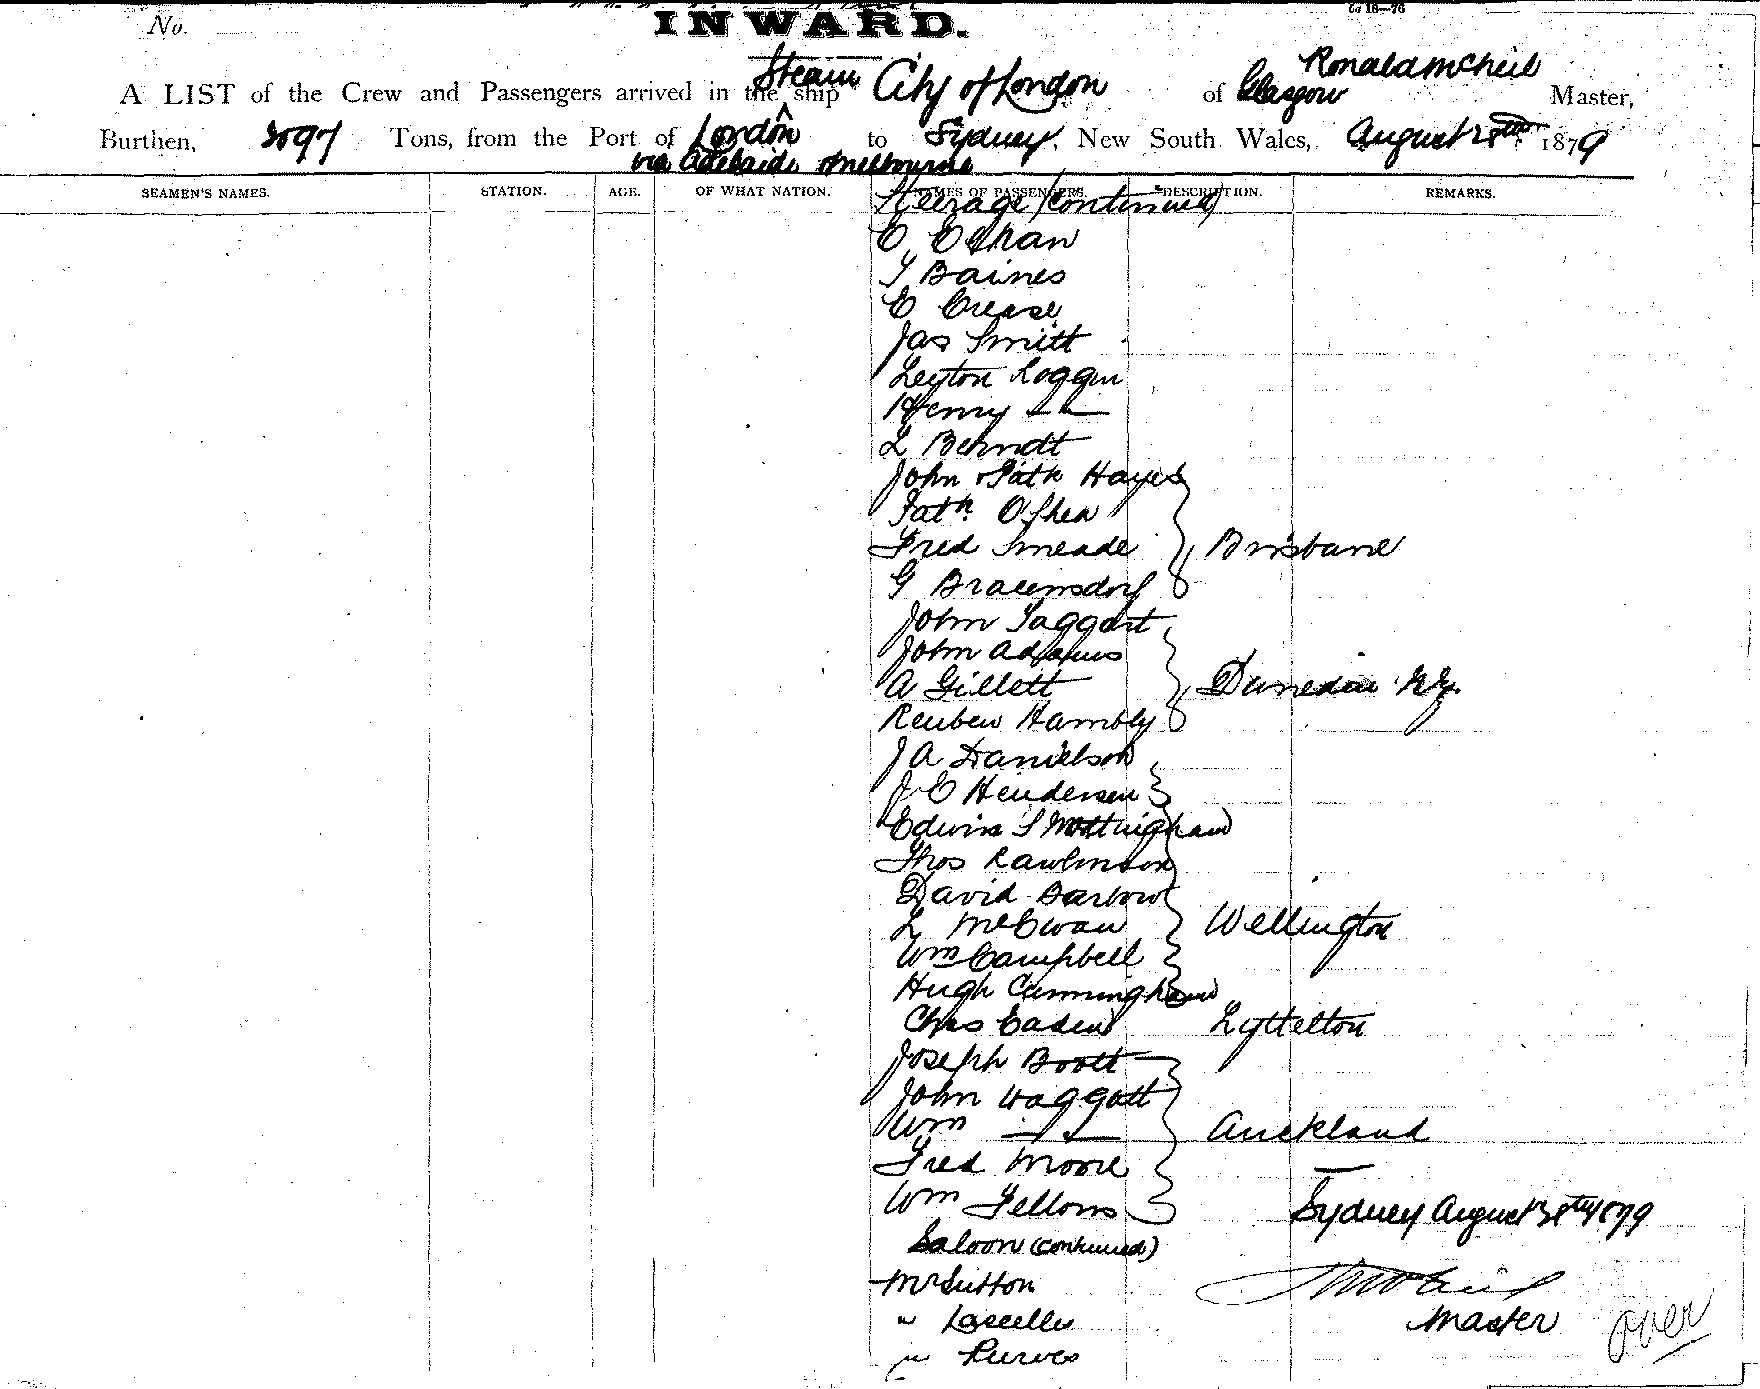 No. INWARD.
Steam
Ronald McNeil
A LIST of the Crew and Passengers arrived in the ship City of London of Glasgow Master,
Burthen, Tons, from the Port of London to Sydney, New South Wales, August 1879
via Adelaide & Melbourne
SEAMEN'S NAMES. STATION. AGE. OF WHAT NATION. NAMES OF PASSENGERS. DESCRIPTION. REMARKS.
Steerage (continued)
C
T Baines
C Crease
Jas Smitt
Leyton Loggin
Henry "
L Berndt
John & Path Hayes
Path O'Shea
Fred Smeade Brisbane
G Braunsdorf
John Taggart
John Adams
A Gillett Dunedin NZ.
Reuben Hambly
J A Danielson
J C Henderson
Edwin S Nottingham
Thos Rawlinson
David Barbour
L McEwan Wellington
Wm Campbell
Hugh Cunningham
Chas Eaden Lyttelton
Joseph Boott
John Waggott
Wm " Auckland
Fred Moore
Wm Fellows
Sydney August 1879
Saloon (continued)
Mr Sutton
" Lascelles
Master
over
" Purves